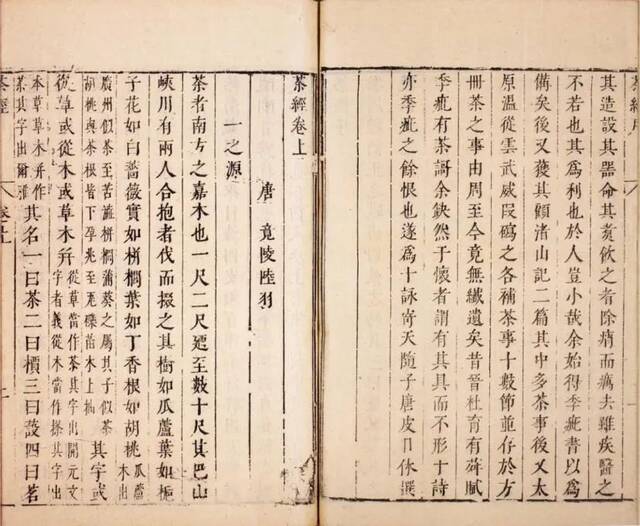 茶經序
其造設其器命其煑飲之者除痟而癘去雖疾醫之
不若也其爲利也於人豈小哉余始得季疵書以爲
備矣後又獲其顧渚山記二篇其中多茶事後又太
原溫從雲武威段碣之各補茶事十數節並存於方
冊茶之事由周至今竟無纖遺矣昔晉杜育有荈賦
季疵有茶謌余缺然于懷者謂有其具而不形于詩
亦季疵之餘恨也遂爲十詠寄天隨子唐皮日休撰
茶經卷上
唐 竟陵陸羽
一之源
茶者南方之嘉木也一尺二尺廼至數十尺其巴山
峽川有兩人合抱者伐而掇之其樹如瓜蘆葉如梔
子花如白薔薇實如栟櫚葉如丁香根如胡桃瓜蘆木出
廣州似茶至苦澁栟櫚蒲葵之屬其子似茶胡桃與茶根皆下孕兆至瓦礫苗木上抽其字或
從草或從木或草木并從草當作茶其字出開元文字音義從木當作搽其字出
本草草木并作荼其字出爾雅其名一曰茶二曰檟三曰蔎四曰茗
茶經 卷上